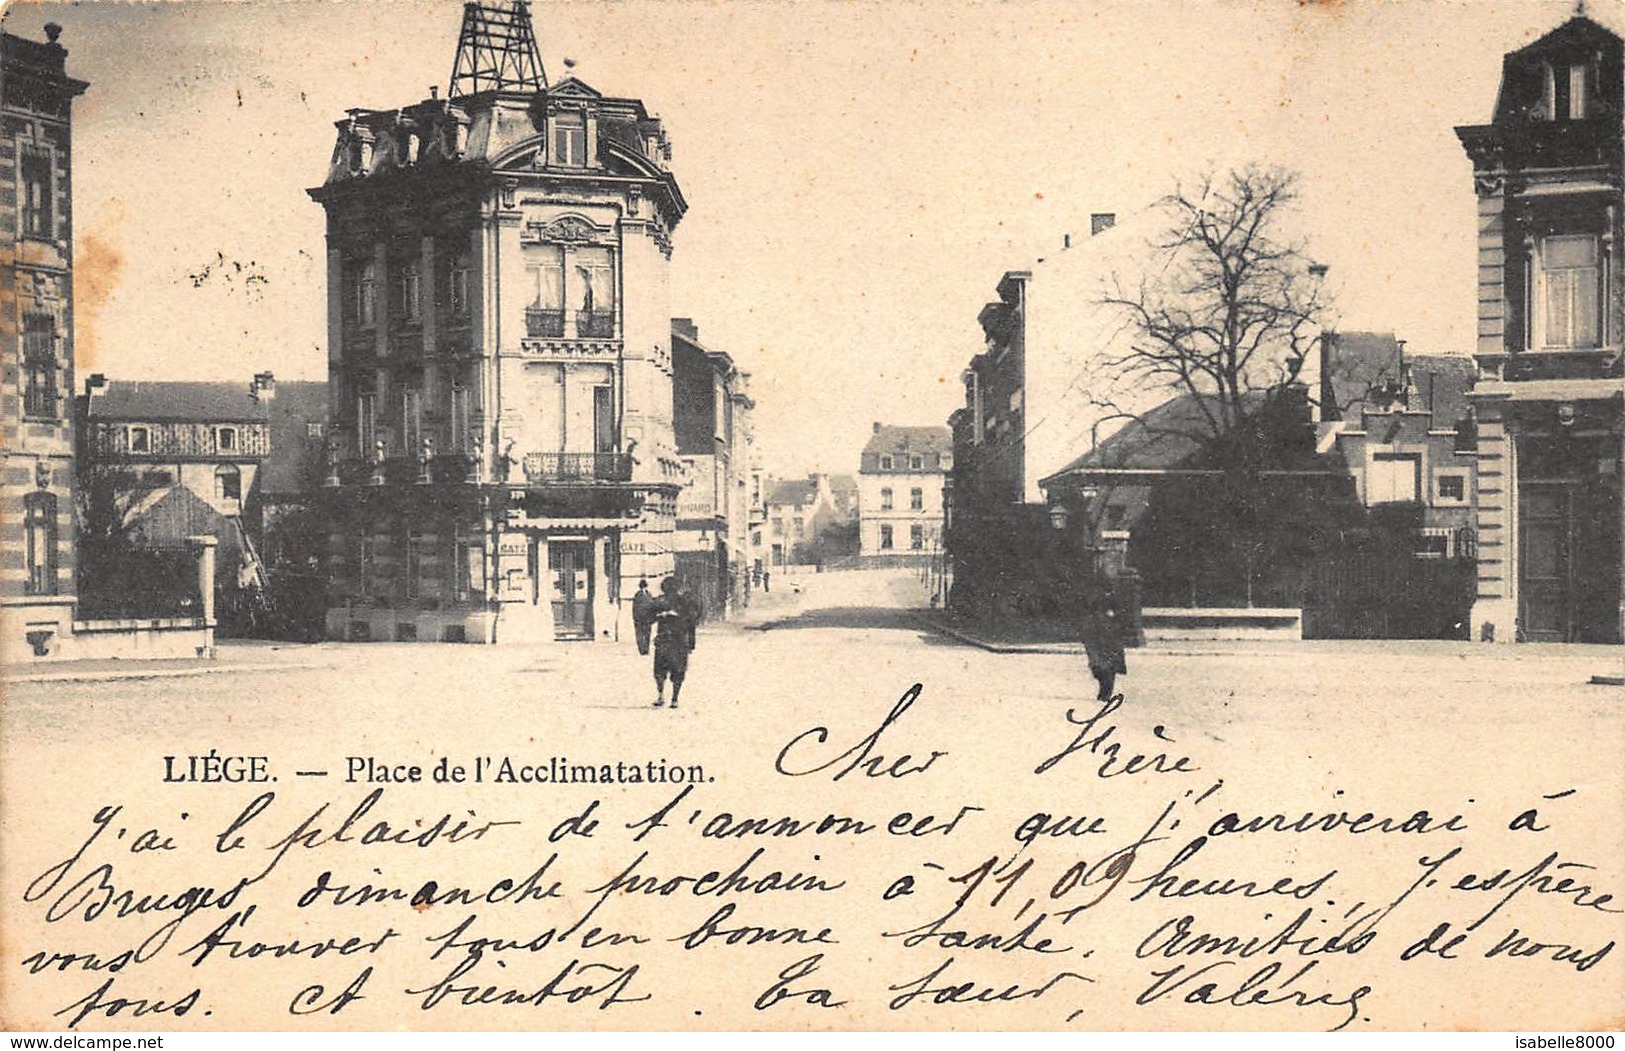 CAFÉ
CAFÉ
LIÉGE. — Place de l'Acclimatation.
Cher Frère,
J'ai le plaisir de t'annoncer que j'arriverai à
Bruges, dimanche prochain à 11,09 heures. J'espère
vous trouver tous en bonne santé. Amitiés de nous
tous. A bientôt. Ta sœur, Valérie.
delcampe.net
isabelle8000